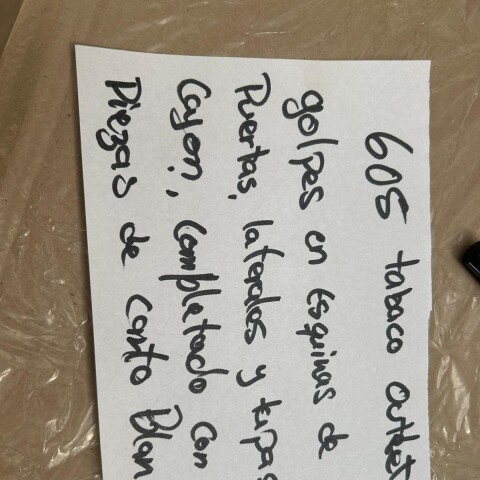 605 tabaco outlet
golpes en Esquinas de
Puertas, laterales y tapas
Cajon, Completado con
Piezas de canto Blan